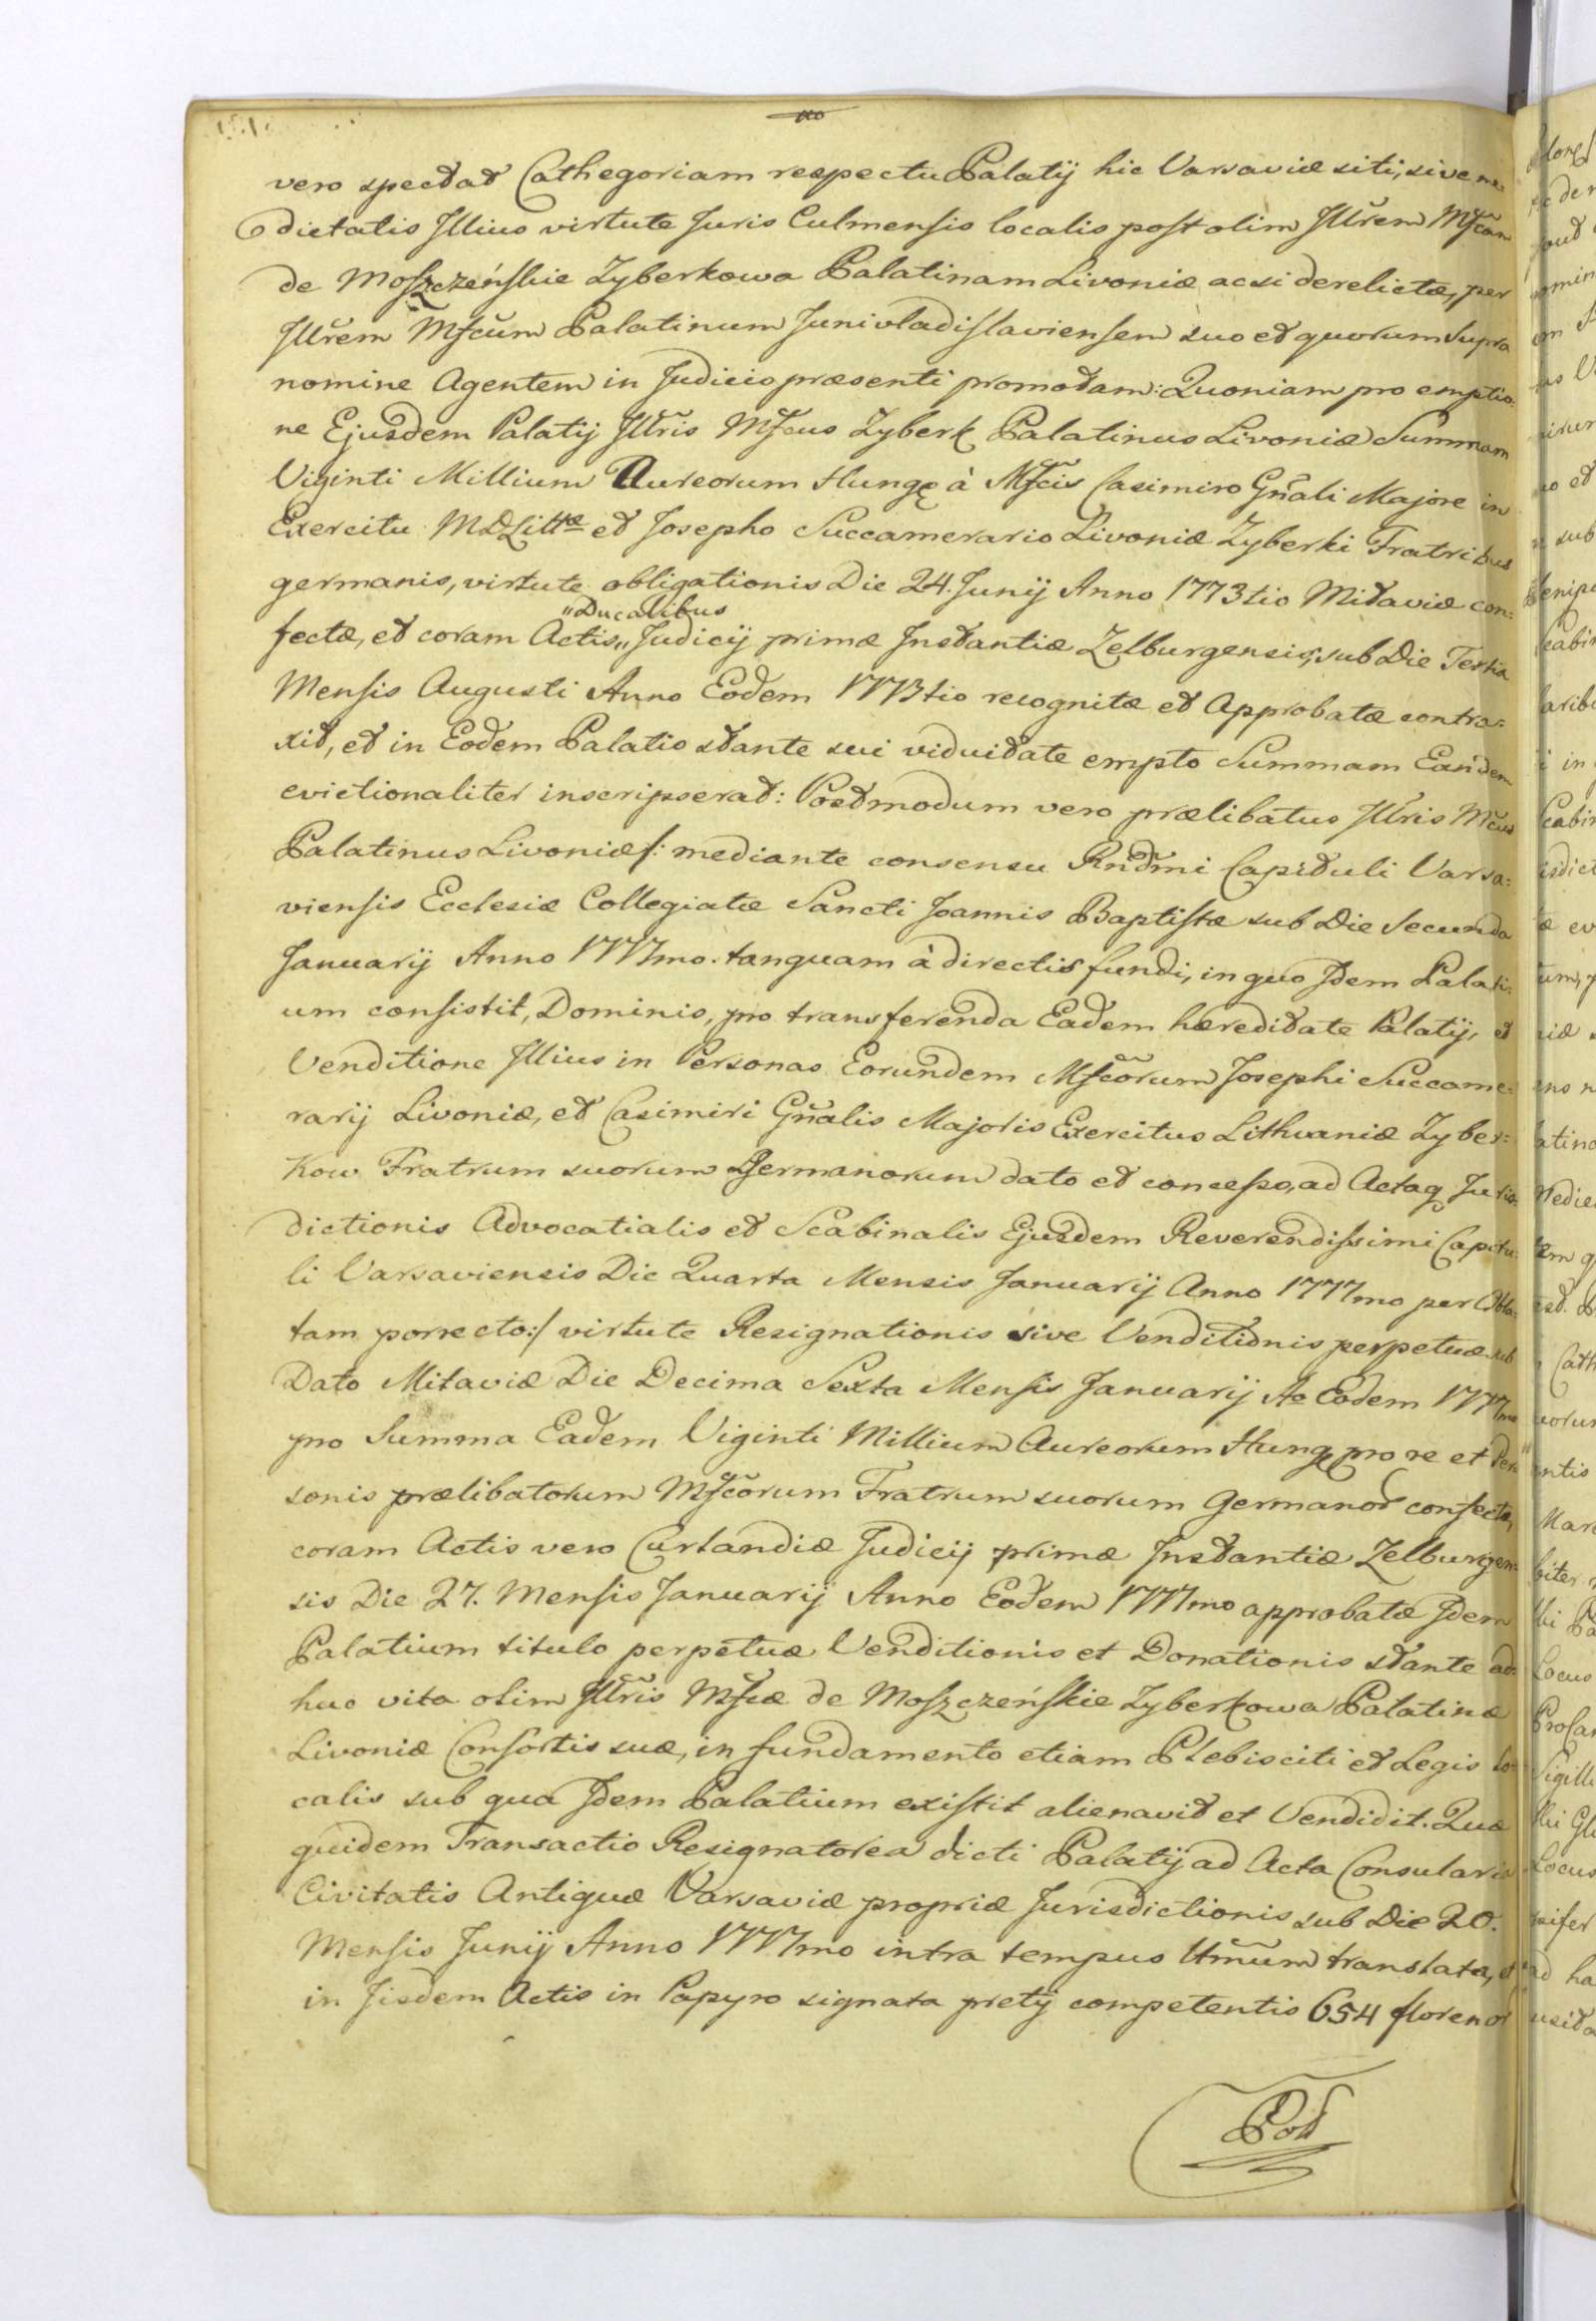 vero spectat Cathegoriam respectu Palatij hic Varsaviæ siti, sive me=
dictatis Illius virtute Juris Culmensis localis post olim Illřem Mfcãm
de Moszczeńskie Zyberkowa Palatinam Livoniæ acsi derelictæ, per
Illřem Mfcũm Palatinum Junivladislaviensem suo et quorum supra
nomine Agentem in Judicio præsenti promotam: Quoniam pro emptio=
ne Ejusdem Palatij Illris Mfcus Zyberk Palatinus Livoniæ Summam
Viginti Millium Aureorum Hungę à Mfcis Casimiro Gñali Majore in
Exercitu M.D.Littæ et Josepho Succamerario Livoniæ Zyberki Fratribus
germanis, virtute obligationis Die 24. Junij Anno 1773tio Mitaviæ con=
"Ducalibus
fectæ, et coram Actis" Judicij primæ Instantiæ Zelburgensis, sub Die Tertia
Mensis Augusti Anno Eodem 1773tio recognitæ et Approbatæ contra=
xit, et in Eodem Palatio stante sui viduitate empto Summam Eandem
evictionaliter inscripserat: Postmodum vero prælibatus Illris Mcus
Palatinus Livoniæ /: mediante consensu Rñdmi Capituli Varsa=
viensis Ecclesiæ Collegiatæ Sancti Joannis Baptistæ sub Die Secunda
Januarij Anno 1777mo. tanquam à directis fundi, in quo Idem Palati=
um consistit, Dominis, pro transferenda Eadem hæreditate Palatij, et
Venditione Illius in Personas Eorundem Mfcorum Josephi Succame=
rarij Livoniæ, et Casimiri Gñalis Majoris Exercitus Lithvaniæ Zyber=
kow Fratrum suorum Germanorum dato et concesso, ad Actaq Juris=
dictionis Advocatialis et Scabinalis Ejusdem Reverendissimi Capitu=
li Varsaviensis Die Quarta Mensis Januarij Anno 1777mo per Obla=
tam porrecto:/ virtute Resignationis sive Venditionis perpetuæ sub
Dato Mitaviæ Die Decima Sexta Mensis Januarij Ao Eodem 1777mo
pro Summa Eadem Viginti Millium Aureorum Hungę pro re et Per=
sonis prælibatorum Mfcorum Fratrum suorum Germanor confectæ,
coram Actis vero Curlandiæ Judicij primæ Instantiæ Zelburgen=
sis Die 27. Mensis Januarij Anno Eodem 1777mo approbatæ Idem
Palatium titulo perpetuæ Venditionis et Donationis stante ad=
huc vita olim Illris Mfcæ de Moszczeńskie Zyberkowa Palatinæ
Livoniæ Consortis suæ, in fundamento etiam Plebisciti et Legis lo=
calis sub qua Idem Palatium existit alienavit et Vendidit. Quæ
quidem Transactio Resignatorea dicti Palatij ad Acta Consularia
Civitatis Antiquæ Varsaviæ propriæ Jurisdictionis sub Die 20.
Mensis Junij Anno 1777mo intra tempus Utm̃um translata, et
in Iisdem Actis in Papyro signata pretij competentis 654 florenor